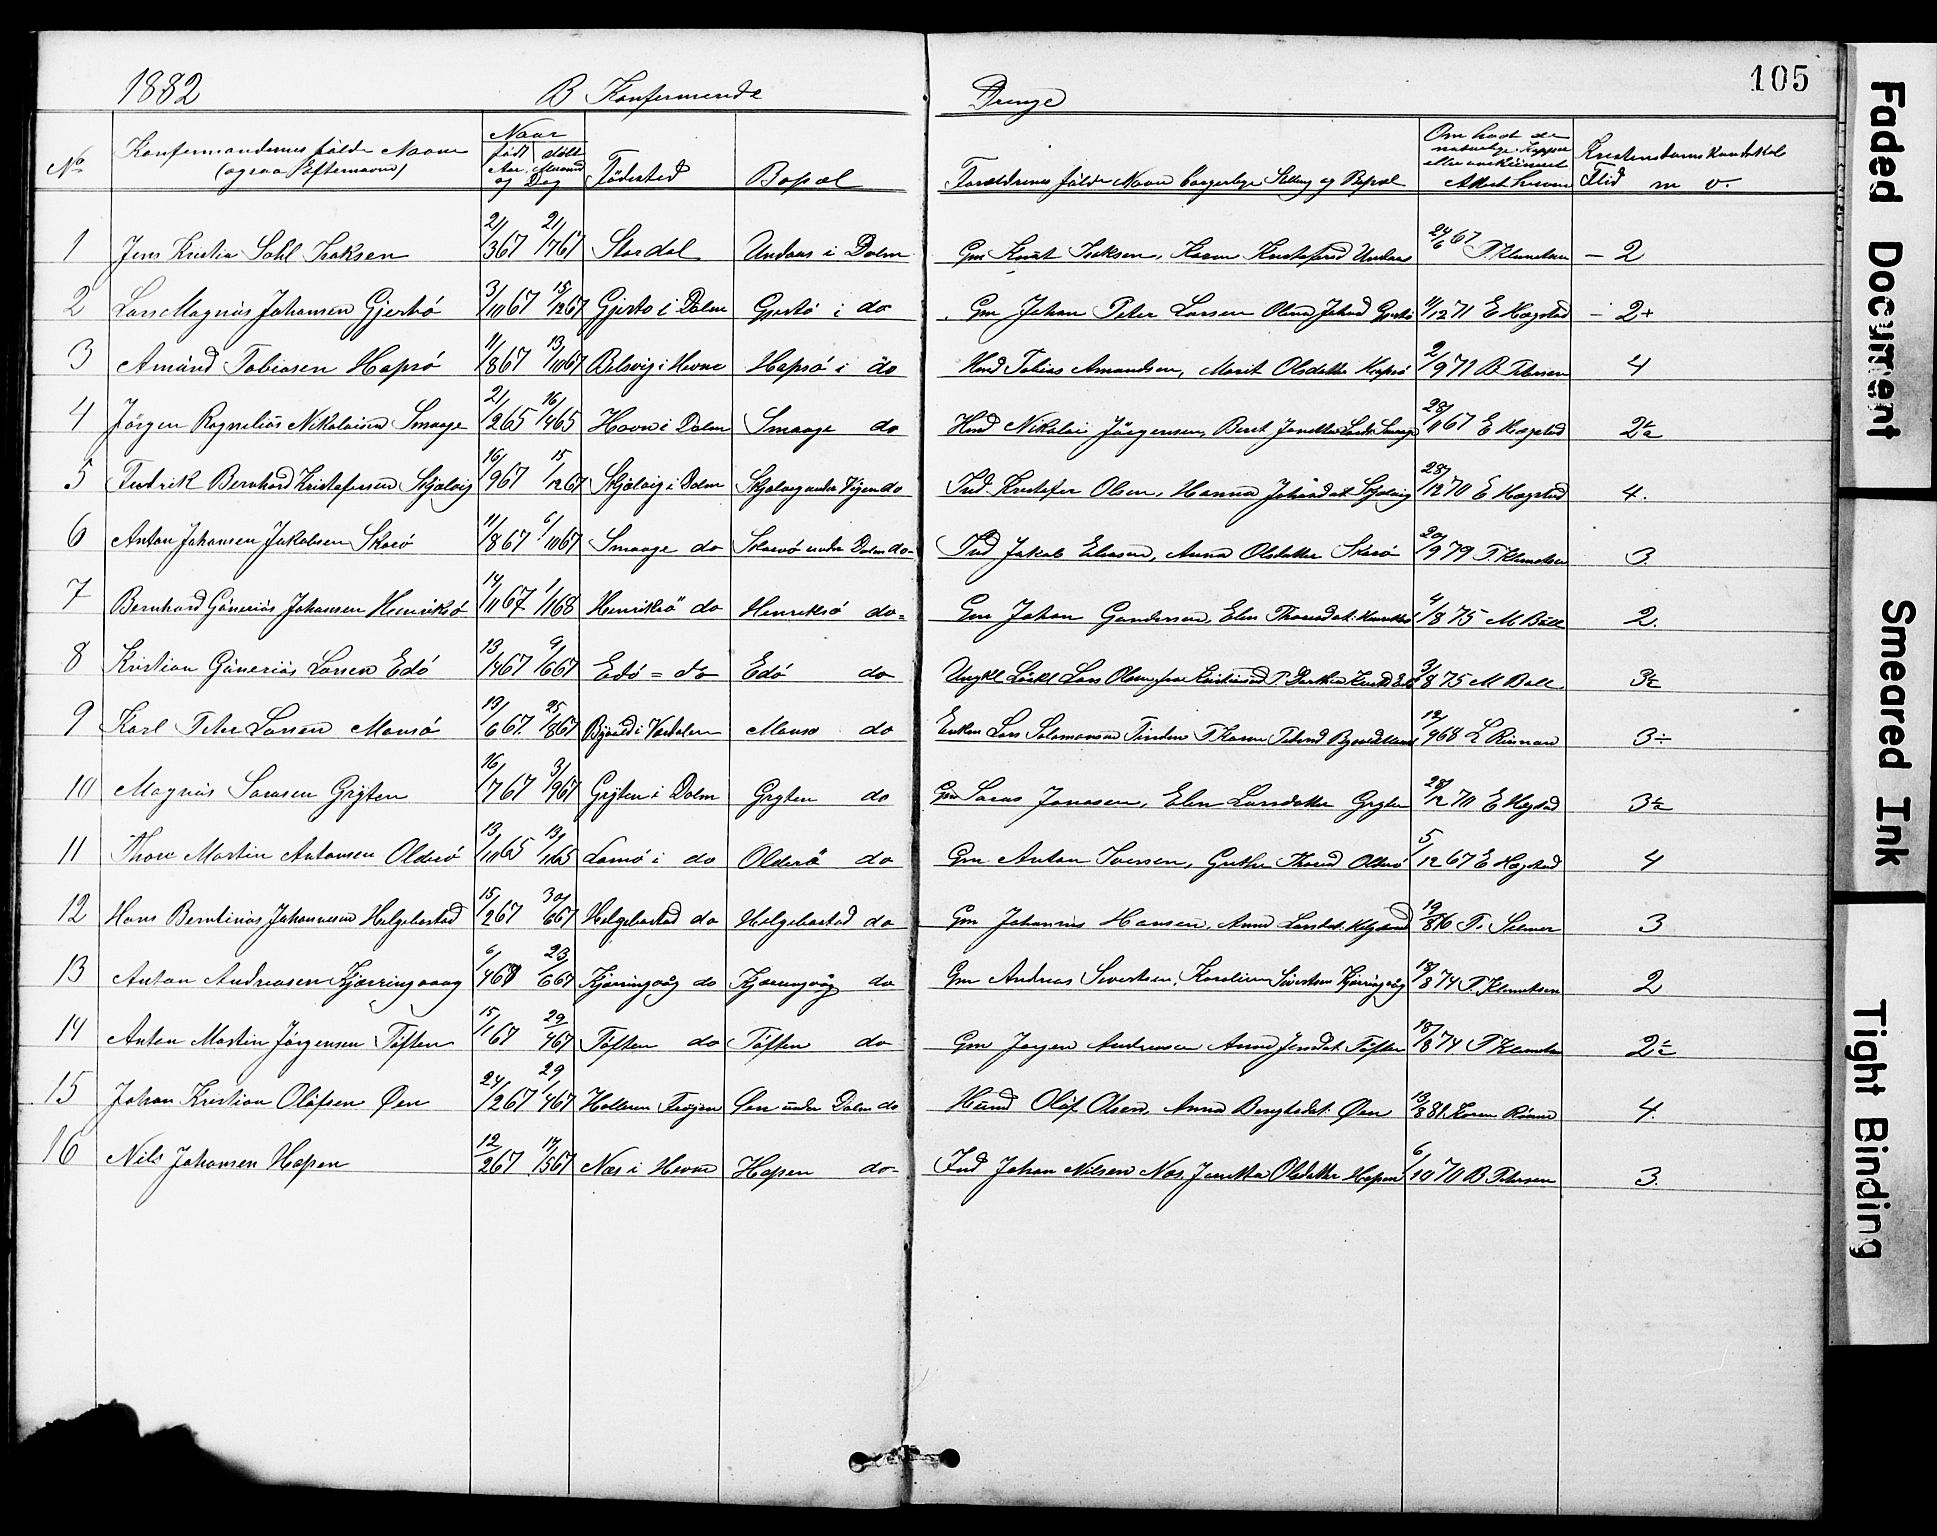 1882 B Konfermerede Drenge 105
No
Konfermandernes fulde Navne
(ogsaa Efternavnet)
Naar
født døbt
Aar. Maaned
og Dag
Fødested
Bopæl
Forældrenes fulde Navne borgerlige Stilling og Bopæl
Om havt de
naturlige Kopper
eller vaccineret
Attest herom
Kristendomskundskab
Flid m v.
1 Jens Kristian Dahl Isaksen 21/367 21/767 Stordal Undaas i Dolm Gm Knut Isaksen, Karen Kristofersd Undaas 24/667 P. Klemetsen – 2
2 Lars Magnus Johansen Gjertø 3/1067 15/1267 Gjertø i Dolm Gjertø i do Gm Johan Peter Larsen Olina Johsd Gjertø 11/1271 E Hægstad – 2+
3 Amund Tobiasen Hapsø 11/867 13/1067 Belsvig i Hevne Hapsø i do Hmd Tobias Amundsen, Marit Olsdatter Hapsø 2/971 B. Petersen 4
4 Jørgen Kornelius Nikolaisen Smaage 21/265 16/465 Havn i Dolm Smaage do Hmd Nikolai Jørgensen, Smaage 28/1167 E Hægstad 2½
5 Fredrik Bernhard Kristofersen Skjælvig 16/967 15/1267 Skjælvig i Dolm Skjælvig under do Ind Kristofer Olsen, Hanna Johansdat Skjælvig 28/1270 E Hægstad 4.
6 Anton Johansen Jakobsen Skarsø 11/867 6/1067 Smaage do Skarsø under Dolm do Ind Jakob Eliasen, Anna Olsdatter Skarsø 20/979 P. Klemetsen 3.
7 Bernhard Gunerius Johansen Henriksø 14/1167 1/168 Henriksø do Henriksø do Gm Johan Gundersen, Elen Thomsdat. Henriksø 4/875 M Bull 2.
8 Kristian Gunerius Larsen Edø 13/467 9/667 Edø = do Edø do Ungkl Lars Olsen 3/875 M Bull 3½
9 Karl Peter Larsen Mausø 19/667. 25/867 i Værdalen Mausø do Enken Lars Salamonsen 12/968 L Rinnan 3÷
10 Magnus Larsen Gryten 16/767 3/967 Gryten i Dolm Gryten do Gm Lars Jonasen, Elen Larsdatter Gryten 28/1270 E Hegstad 3½
11 Thore Martin Antonsen Oldersø 13/1065 19/1165 Lamø i do Oldersø do Gm Anton Iversen, Gurthe Thoresd Oldersø 5/1267 E Hægstad 4
12 Hans Berntinus Johannesen Helgebostad 15/267 30/667 Helgebostad do Helgebostad do Gm Johannes Hansen, Anna Larsdat. 19/876 P. Selmer 3
13 Anton Andreasen Kjærringvaag 6/468 23/667 Kjærringvåg do Kjærringvåg do Gm Andreas Sivertsen, Karoline Sivertsen Kjærringvåg 18/874 P. Klemetsen 2
14 Anton Martin Jørgensen Tøften 15/167 29/467 Tøften do Tøften do Gm Jørgen Andreasen Anna Jensdat Tøften 18/874 P Klemetsen 2½
15 Johan Kristian Olufsen Øen 24/267 29/467 Holteren Frøyen Øen under Dolm do Hund Oluf Olsen, Anna Bengtsdat. Øen 13/881. Karen Rønne 4.
16 Nils Johansen Hapsen 12/267 14/567 Næs i Hevne Hapsen do Ind Johan Nilsen Næs, Jonetta Olsdatter Hapsen 6/1070 B. Petersen 3.
Faded Document
Smeared Ink
Tight Binding